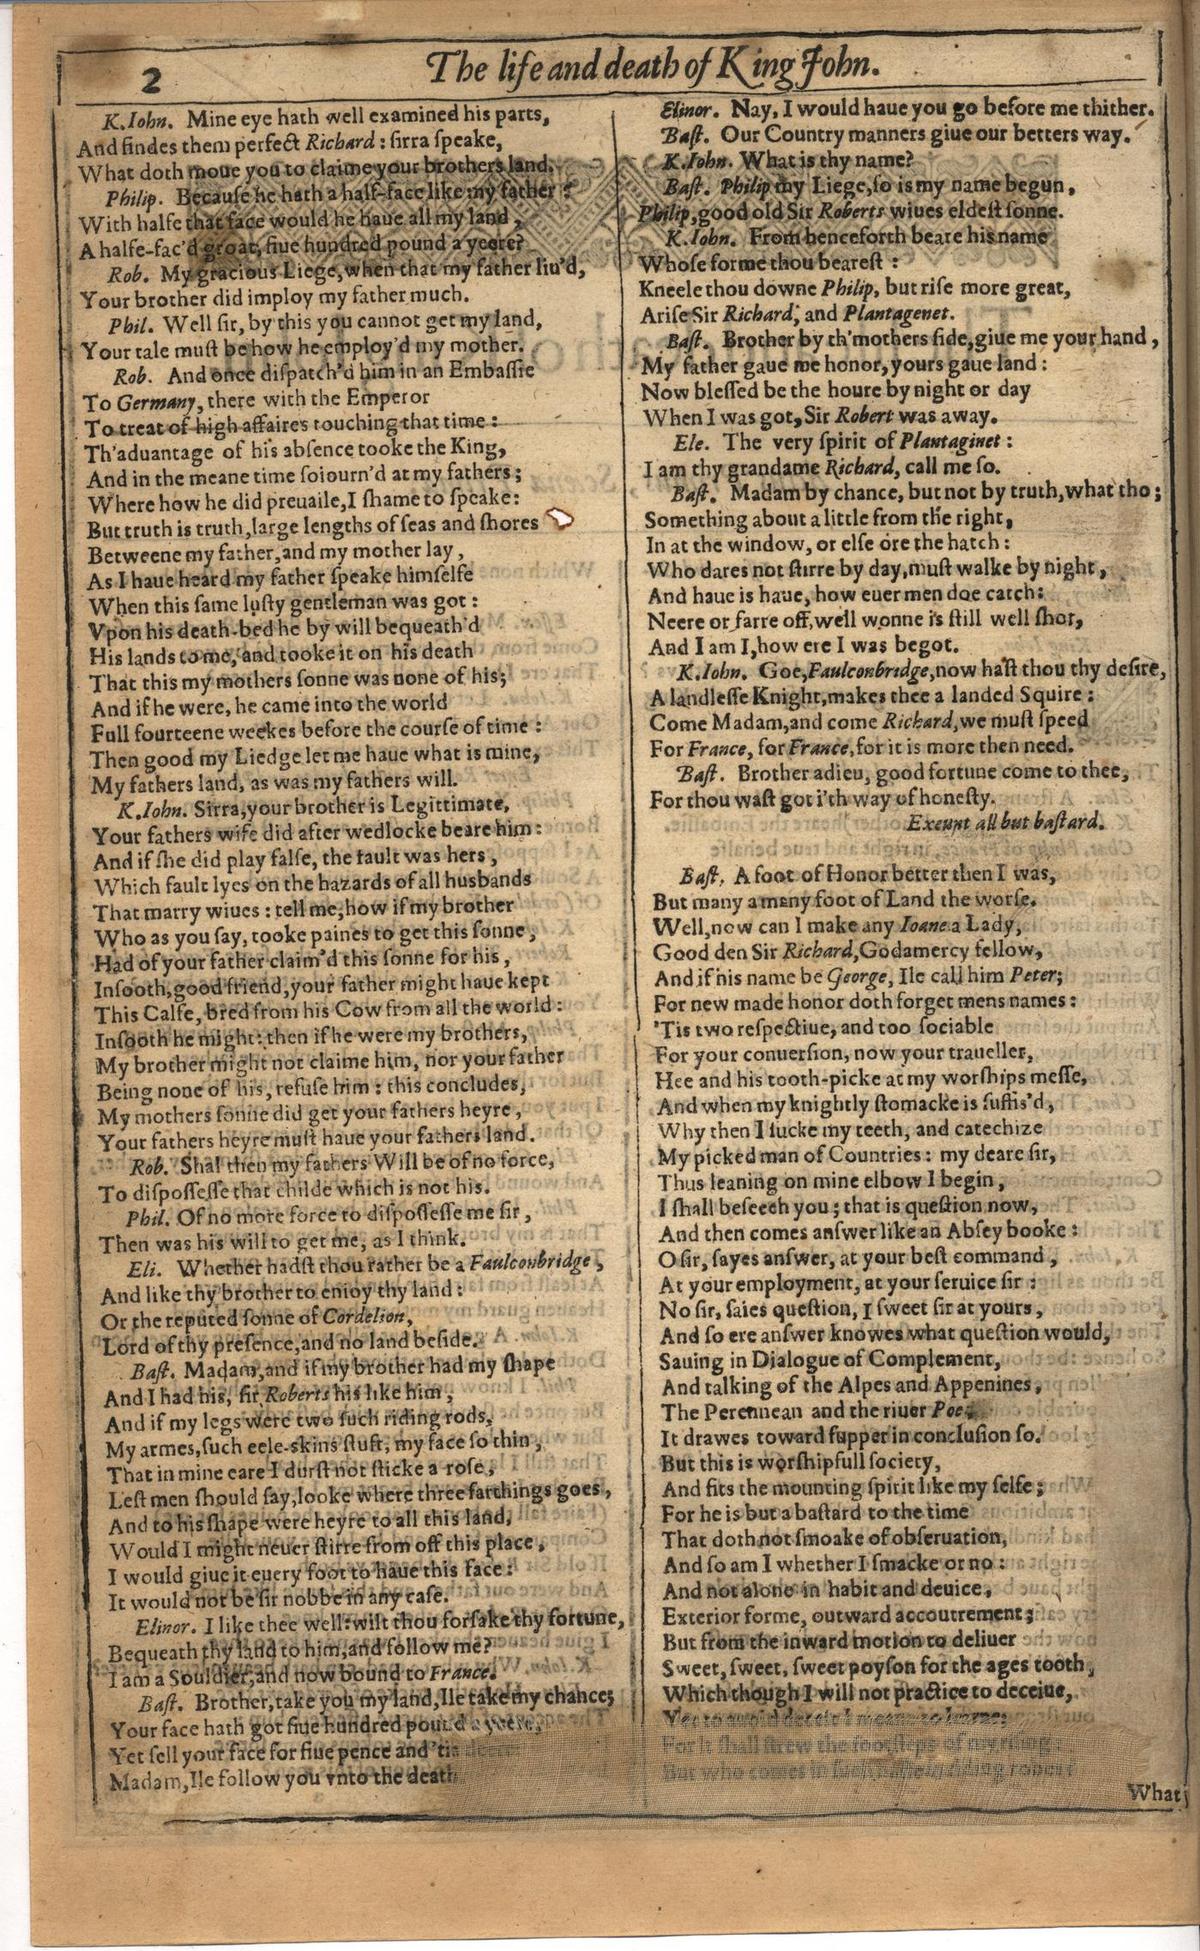 2
The life and death of King John.
K.Iohn. Mine eye hath well examined his parts,
And findes them perfect Richard : sirra speake,
What doth moue you to claime your brothers land.
Philip. Because he hath a half-face like my father ?
With halfe that face would he haue all my land,
A halfe-fac'd groat, fiue hundred pound a yeere?
Rob. My gracious Liege, when that my father liu'd,
Your brother did imploy my father much.
Phil. Well sir, by this you cannot get my land,
Your tale must be how he employ'd my mother.
Rob. And once dispatch'd him in an Embassie
To Germany, there with the Emperor
To treat of high affaires touching that time :
Th'aduantage of his absence tooke the King,
And in the meane time soiourn'd at my fathers;
Where how he did preuaile, I shame to speake:
But truth is truth, large lengths of seas and shores
Betweene my father, and my mother lay,
As I haue heard my father speake himselfe
When this same lusty gentleman was got :
Vpon his death-bed he by will bequeath'd
His lands to me, and tooke it on his death
That this my mothers sonne was none of his;
And if he were, he came into the world
Full fourteene weekes before the course of time :
Then good my Liedge let me haue what is mine,
My fathers land, as was my fathers will.
K.Iohn. Sirra, your brother is Legittimate,
Your fathers wife did after wedlocke beare him :
And if she did play false, the fault was hers,
Which fault lyes on the hazards of all husbands
That marry wiues : tell me, how if my brother
Who as you say, tooke paines to get this sonne,
Had of your father claim'd this sonne for his,
Insooth, good friend, your father might haue kept
This Calfe, bred from his Cow from all the world :
Insooth he might : then if he were my brothers,
My brother might not claime him, nor your father
Being none of his, refuse him : this concludes,
My mothers sonne did get your fathers heyre,
Your fathers heyre must haue your fathers land.
Rob. Shal then my fathers Will be of no force,
To dispossesse that childe which is not his.
Phil. Of no more force to dispossesse me sir,
Then was his will to get me, as I think.
Eli. Whether hadst thou rather be a Faulconbridge,
And like thy brother to enioy thy land :
Or the reputed sonne of Cordelion,
Lord of thy presence, and no land beside.
Bast. Madam, and if my brother had my shape
And I had his, sir Roberts his like him,
And if my legs were two such riding rods,
My armes, such eele-skins stuft, my face so thin,
That in mine eare I durst not sticke a rose,
Lest men should say, looke where three farthings goes,
And to his shape were heyre to all this land,
Would I might neuer stirre from off this place,
I would giue it euery foot to haue this face :
It would not be sir nobbe in any case.
Elinor. I like thee well : wilt thou forsake thy fortune,
Bequeath thy land to him, and follow me?
I am a Souldier, and now bound to France.
Bast. Brother, take you my land, Ile take my chance;
Your face hath got fiue hundred pound a yeere,
Yet sell your face for fiue pence and 'tis deere:
Madam, Ile follow you vnto the death
Elinor. Nay, I would haue you go before me thither.
Bast. Our Country manners giue our betters way.
K.Iohn. What is thy name?
Bast. Philip my Liege, so is my name begun,
Philip, good old Sir Roberts wiues eldest sonne.
K.Iohn. From henceforth beare his name
Whose forme thou bearest :
Kneele thou downe Philip, but rise more great,
Arise Sir Richard, and Plantagenet.
Bast. Brother by th'mothers side, giue me your hand,
My father gaue me honor, yours gaue land :
Now blessed be the houre by night or day
When I was got, Sir Robert was away.
Ele. The very spirit of Plantaginet :
I am thy grandame Richard, call me so.
Bast. Madam by chance, but not by truth, what tho;
Something about a little from the right,
In at the window, or else ore the hatch :
Who dares not stirre by day, must walke by night,
And haue is haue, how euer men doe catch :
Neere or farre off, well wonne is still well shot,
And I am I, how ere I was begot.
K.Iohn. Goe, Faulconbridge, now hast thou thy desire,
A landlesse Knight, makes thee a landed Squire :
Come Madam, and come Richard, we must speed
For France, for France, for it is more then need.
Bast. Brother adieu, good fortune come to thee,
For thou wast got i'th way of honesty.
Exeunt all but bastard.
Bast. A foot of Honor better then I was,
But many a many foot of Land the worse.
Well, now can I make any Ioane a Lady,
Good den Sir Richard, Godamercy fellow,
And if his name be George, Ile call him Peter;
For new made honor doth forget mens names :
'Tis two respectiue, and too sociable
For your conuersion, now your traueller,
Hee and his tooth-picke at my worships messe,
And when my knightly stomacke is suffis'd,
Why then I sucke my teeth, and catechize
My picked man of Countries : my deare sir,
Thus leaning on mine elbow I begin,
I shall beseech you; that is question now,
And then comes answer like an Absey booke :
O sir, sayes answer, at your best command,
At your employment, at your seruice sir :
No sir, saies question, I sweet sir at yours,
And so ere answer knowes what question would,
Sauing in Dialogue of Complement,
And talking of the Alpes and Appenines,
The Perennean and the riuer Poe,
It drawes toward supper in conclusion so.
But this is worshipfull society,
And fits the mounting spirit like my selfe;
For he is but a bastard to the time
That doth not smoake of obseruation,
And so am I whether I smacke or no :
And not alone in habit and deuice,
Exterior forme, outward accoutrement;
But from the inward motion to deliuer
Sweet, sweet, sweet poyson for the ages tooth,
Which though I will not practice to deceiue,
Yet to auoid deceit I meane to learne;
For it shall strew the footsteps of my rising :
But who comes in such haste in riding robes?
What